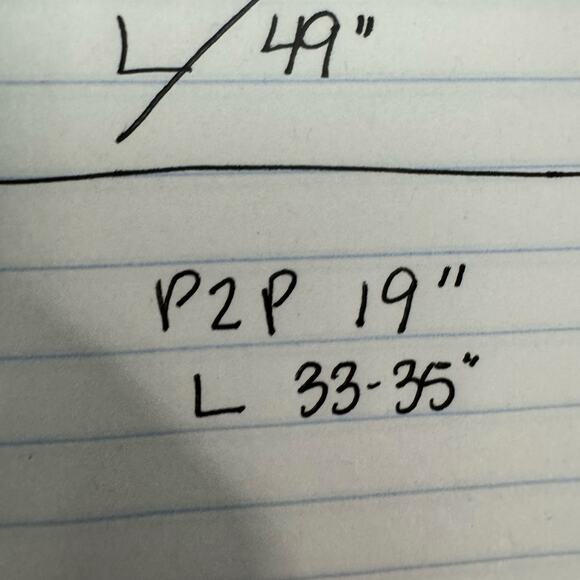 L 49"
P2P 19"
L 33-35"